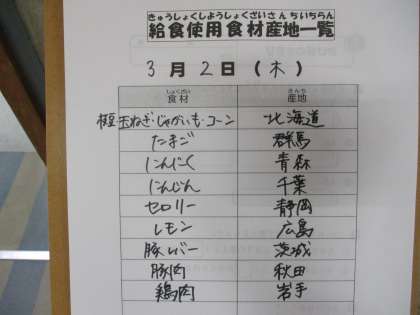 きゅうしょくしようしょくざいさんちいちらん
給食使用食材産地一覧
3月2日(木)
しょくざい さんち
食材 産地
玉ねぎ・じゃがいも・コーン 北海道
たまご 群馬
にんにく 青森
にんじん 千葉
セロリー 静岡
レモン 広島
豚レバー 茨城
豚肉 秋田
鶏肉 岩手